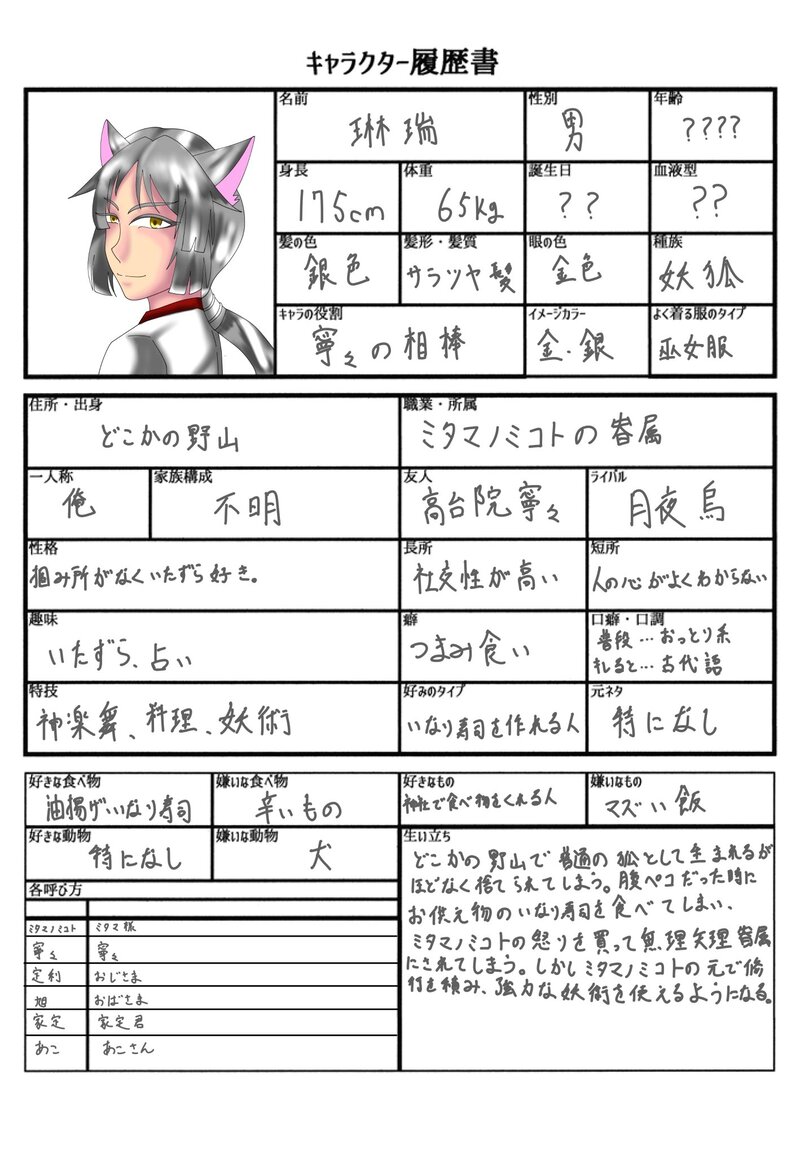 キャラクター履歴書
名前
琳瑞
性別
男
年齢
????
身長
175cm
体重
65kg
誕生日
??
血液型
??
髪の色
銀色
髪形・髪質
サラツヤ髪
眼の色
金色
種族
妖狐
キャラの役割
寧々の相棒
イメージカラー
金・銀
よく着る服のタイプ
巫女服
住所・出身
どこかの野山
職業・所属
ミタマノミコトの眷属
一人称
俺
家族構成
不明
友人
高台院寧々
ライバル
月夜烏
性格
掴み所がなくいたずら好き。
長所
社交性が高い
短所
人の心がよくわからない
趣味
いたずら、占い
癖
つまみ食い
口癖・口調
普段…おっとり系
キレると…古代語
特技
神楽舞、料理、妖術
好みのタイプ
いなり寿司を作れる人
元ネタ
特になし
好きな食べ物
油揚げいなり寿司
嫌いな食べ物
辛いもの
好きなもの
神社で食べ物をくれる人
嫌いなもの
マズい飯
好きな動物
特になし
嫌いな動物
犬
生い立ち
どこかの野山で普通の狐として生まれるが
ほどなく捨てられてしまう。腹ペコだった時に
お供え物のいなり寿司を食べてしまい、
ミタマノミコトの怒りを買って無理矢理眷属
にされてしまう。しかしミタマノミコトの元で修
行を積み、強力な妖術を使えるようになる。
各呼び方
ミタマノミコト ミタマ様
寧々 寧々
定利 おじさま
旭 おばさま
家定 家定君
あこ あこさん